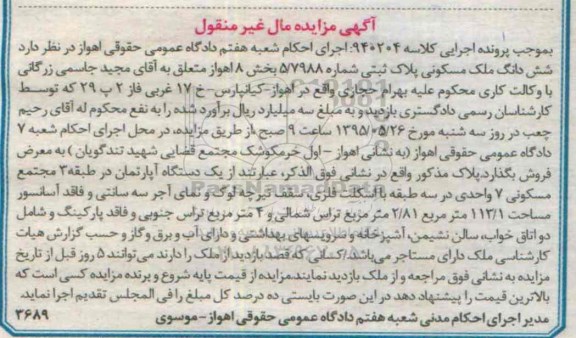 آگهی مزایده مال غیر منقول
بموجب پرونده اجرایی کلاسه ۹۴۰۲۰۴ اجرای احکام شعبه هفتم دادگاه عمومی حقوقی اهواز در نظر دارد
شش دانگ ملک مسکونی پلاک ثبتی شماره ۵/۷۹۸۸ بخش ۸ اهواز متعلق به آقای مجید جاسمی زرگانی
با وکالت کاری محکوم علیه بهرام حجازی واقع در اهواز-کیانپارس-خ ۱۷ غربی فاز ۲ پ ۲۹ که توسط
کارشناسان رسمی دادگستری بازدید و به مبلغ سه میلیارد ریال برآورد شده را به نفع محکوم له آقای رحیم
چعب در روز سه شنبه مورخ ۱۳۹۵/۰۵/۲۶ ساعت ۹ صبح از طریق مزایده، در محل اجرای احکام شعبه ۷
دادگاه عمومی حقوقی اهواز (به نشانی اهواز - اول خرمکوشک مجتمع قضایی شهید تندگویان ) به معرض
فروش بگذارد.پلاک مذکور واقع در نشانی فوق الذکر، عبارتند از یک دستگاه آپارتمان در طبقه ۳ مجتمع
مسکونی ۷ واحدی در سه طبقه با اسکلت فلزی، سقف تیرچه بلوک و نمای آجر سه سانتی و فاقد آسانسور
مساحت ۱۱۳/۱ متر مربع ۲/۸۱ متر مربع تراس شمالی و ۴ متر مربع تراس جنوبی و فاقد پارکینگ و شامل
دو اتاق خواب، سالن نشیمن، آشپزخانه و سرویسهای بهداشتی و دارای آب و برق و گاز و حسب گزارش هیات
کارشناسی ملک دارای مستاجر می‌باشد. کسانی که قصد بازدید از ملک را دارند می‌توانند ۵ روز قبل از تاریخ
مزایده به نشانی فوق مراجعه و از ملک بازدید نمایند.مزایده از قیمت پایه شروع و برنده مزایده کسی است که
بالاترین قیمت را پیشنهاد دهد در این صورت بایستی ده درصد کل مبلغ را فی المجلس تقدیم اجرا نماید.
مدیر اجرای احکام مدنی شعبه هفتم دادگاه عمومی حقوقی اهواز-موسوی ۳۶۸۹